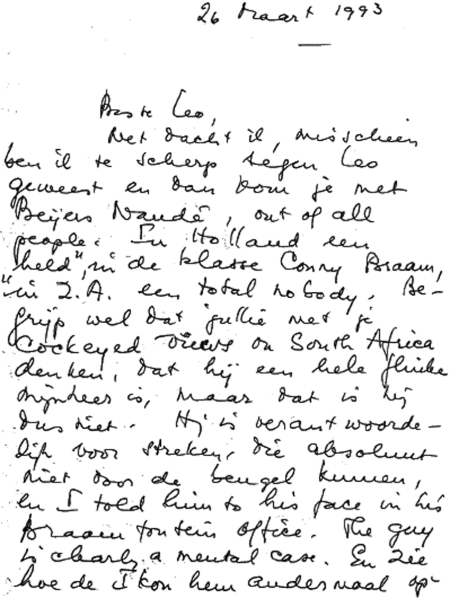 26 Maart 1993
Beste Leo,
Net dacht ik, misschien
ben ik te scherp tegen Leo
geweest en dan kom je met
Beijers Naudé, out of all
people. In Holland een
"held", in de klasse Conny Braam,
in Z.A. een total nobody. Be-
grijp wel dat jullie met je
cockeyed views on South Africa
denken, dat hij een hele flinke
mijnheer is, maar dat is hij
dus niet. Hij is verantwoorde-
lijk voor streken, die absoluut
niet door de beugel kunnen,
en I told him to his face in his
Braamfontein office. The guy
is clearly a mental case. En zie
hoe de I kon hem andermaal op-